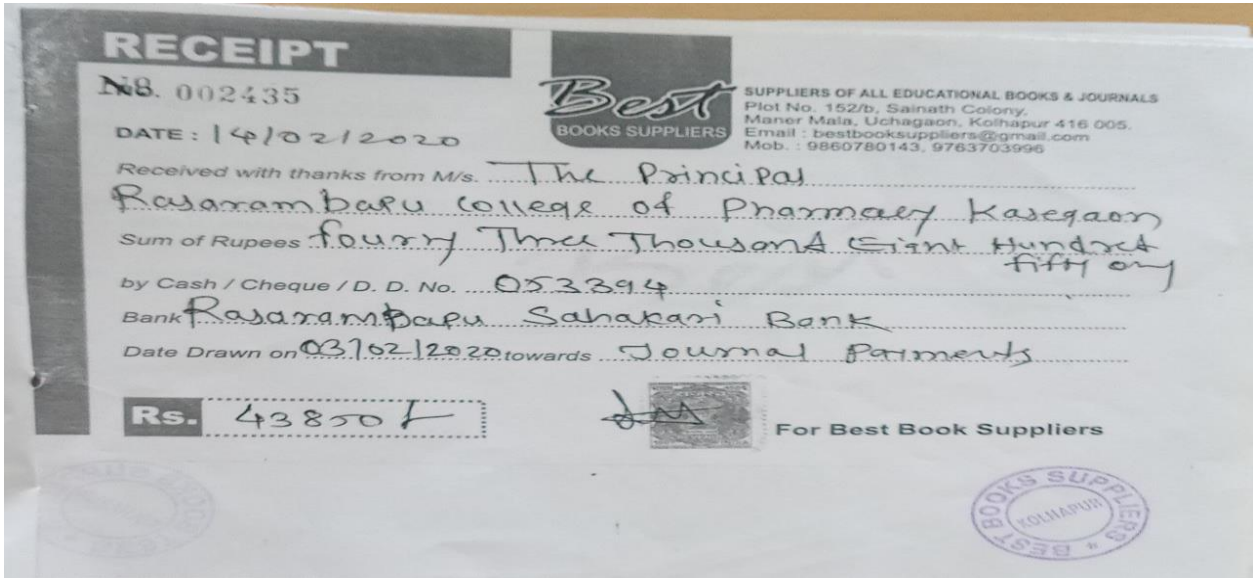 RECEIPT
No. 002435
DATE : 14/02/2020
Best
BOOKS SUPPLIERS
SUPPLIERS OF ALL EDUCATIONAL BOOKS & JOURNALS
Plot No. 152/b, Sainath Colony,
Maner Mala, Uchagaon, Kolhapur 416 005.
Email : bestbooksuppliers@gmail.com
Mob. : 9860780143, 9763703996
Received with thanks from M/s. The Principal
Rajarambapu College of Pharmacy Kasegaon
Sum of Rupees fourry Three Thousand Eight Hundred
fifty only
by Cash / Cheque / D. D. No. 053394
Bank Rajarambapu Sahakari Bank
Date Drawn on 03/02/2020 towards Journal Paiments
Rs. 43850/-
For Best Book Suppliers
BEST BOOKS SUPPLIERS
KOLHAPUR